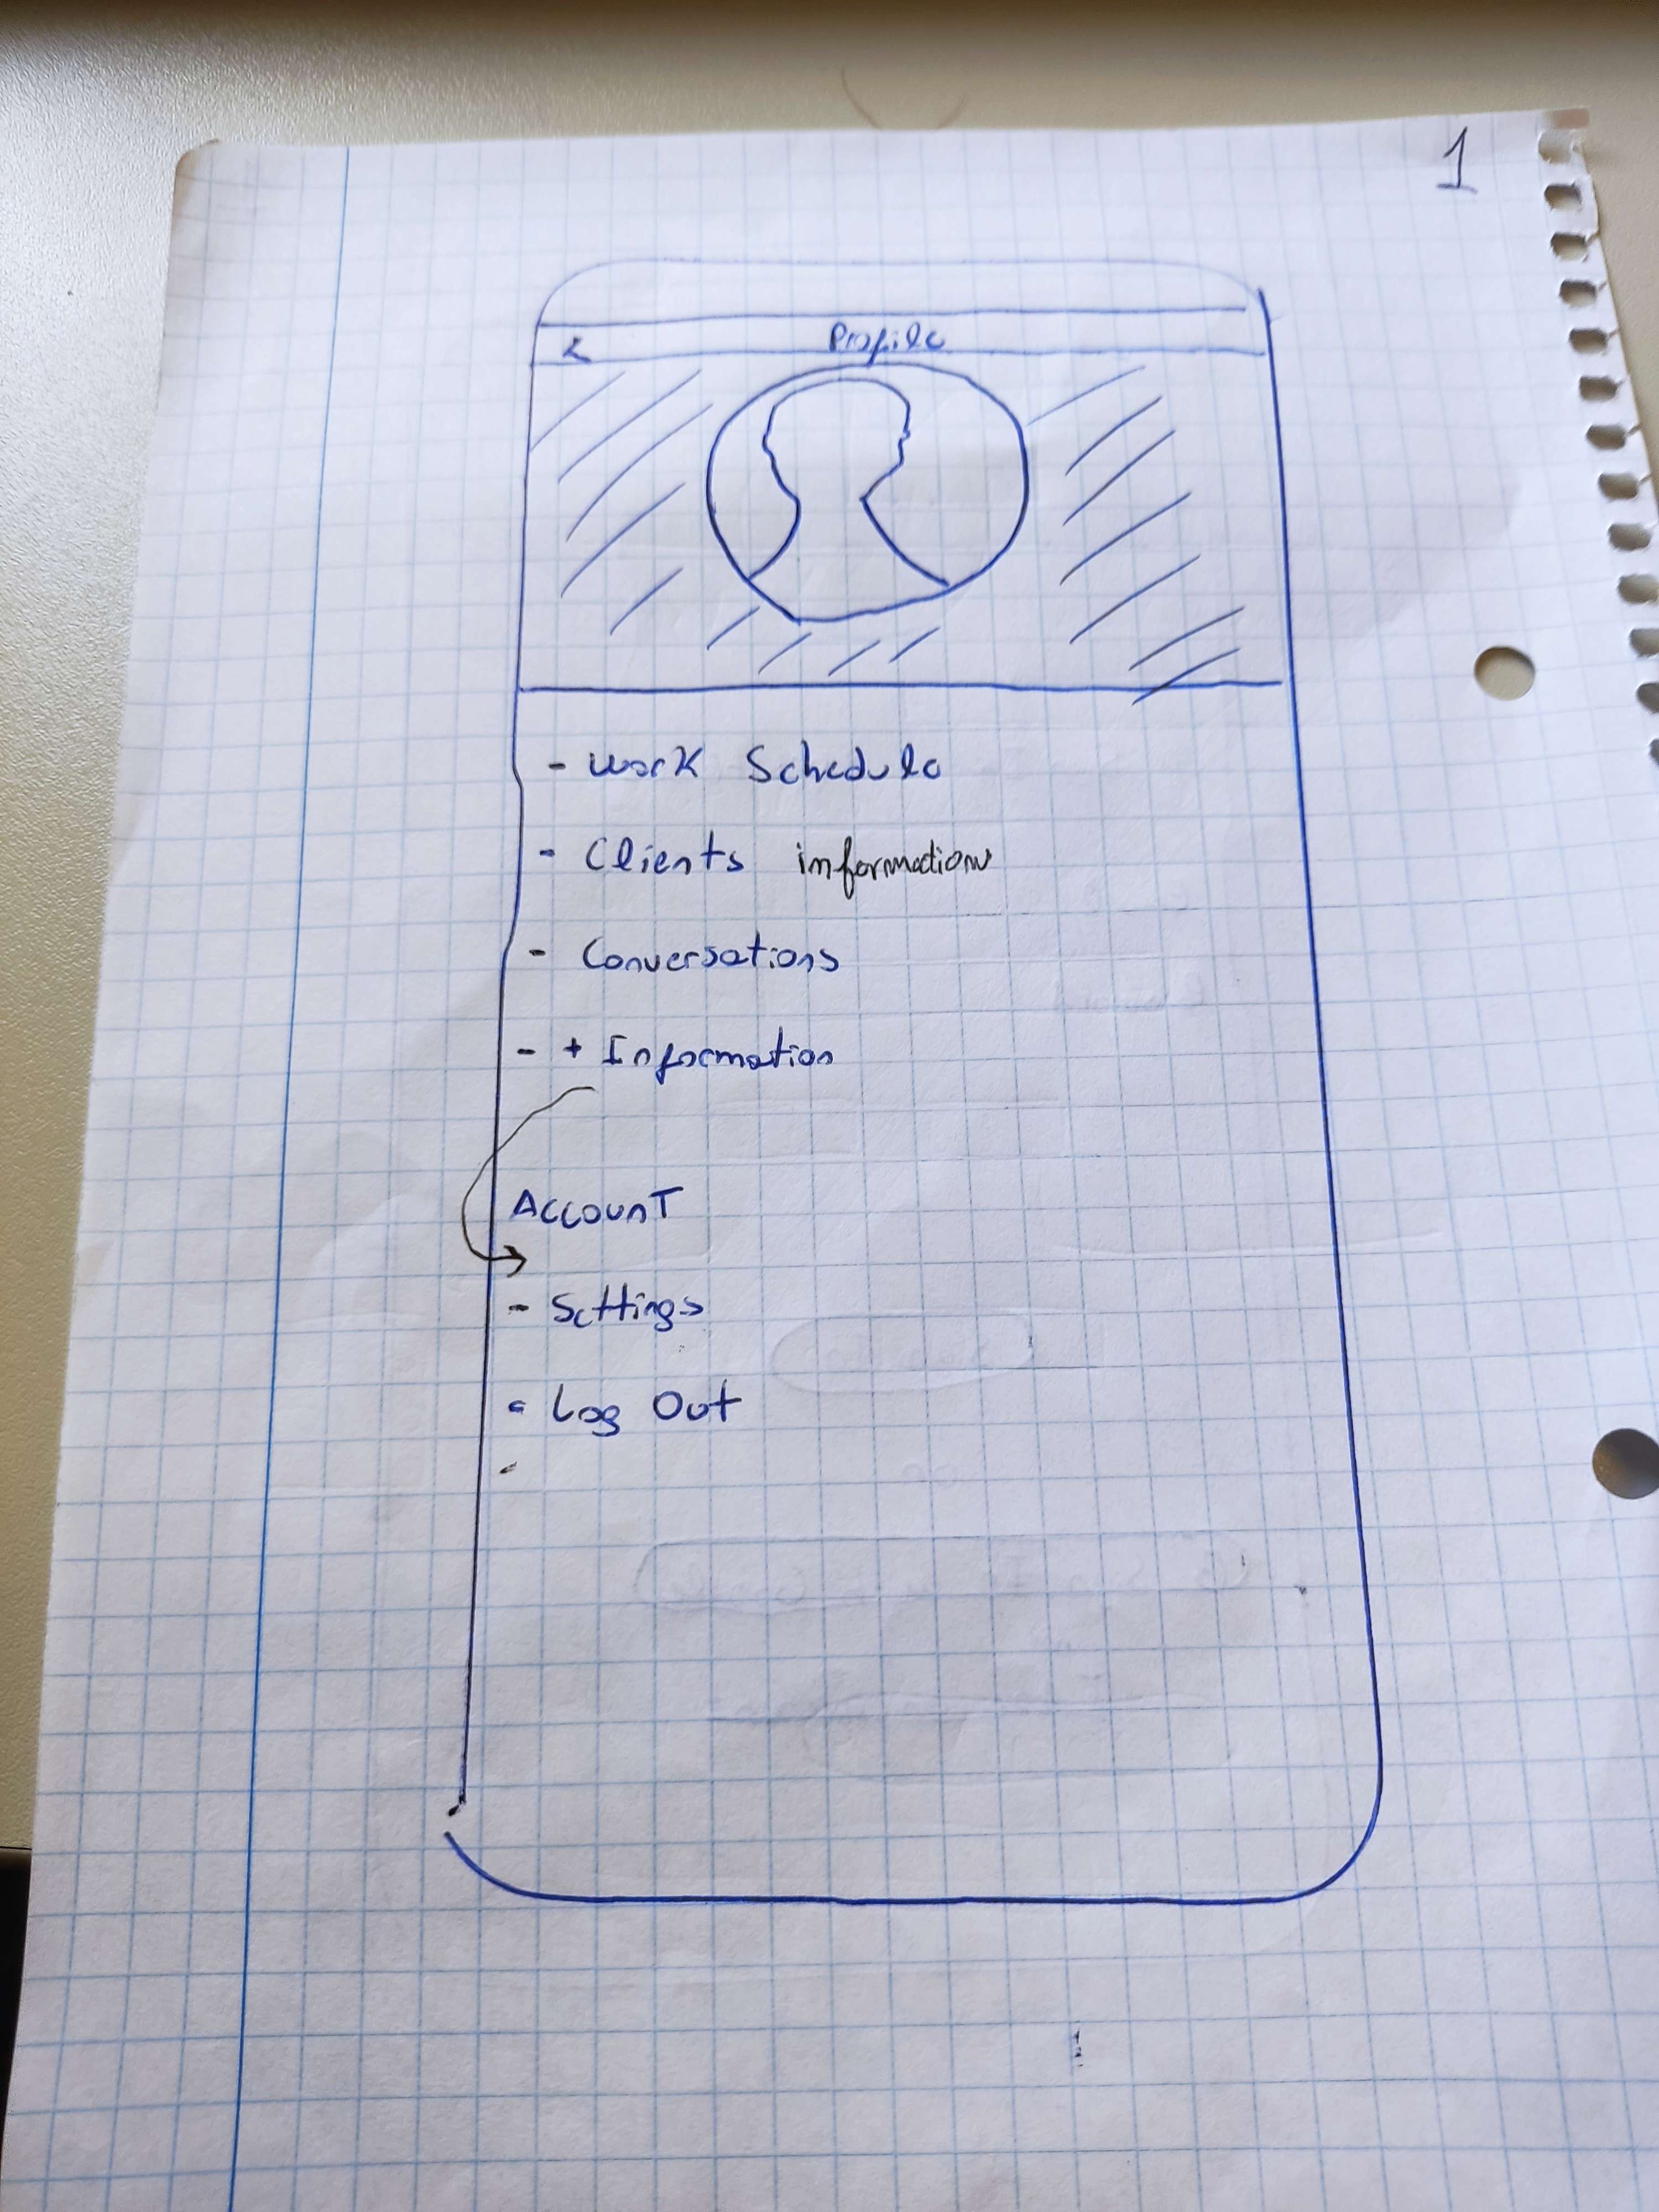 1
< Profile
- Work Schedule
- Clients information
- Conversations
- + Information
Account
- Settings
- Log Out
-